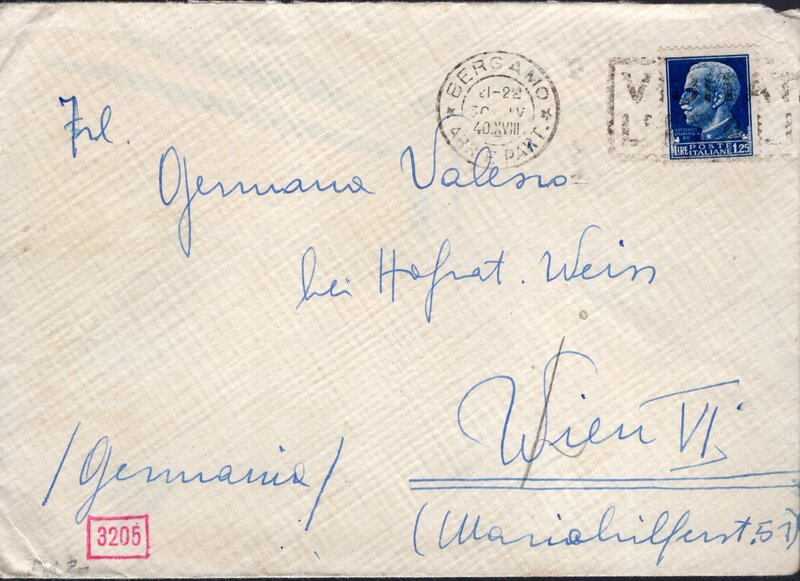 BERGAMO
21-22
30 IV
40.XVIII
ARR. E PART.
VISITATE
POSTE
LIRE ITALIANE 1.25
Frl.
Germana Valesio
bei Hofrat. Weiss
Wien VI.
/Germania/
(Mariahilferst. 51)
3205